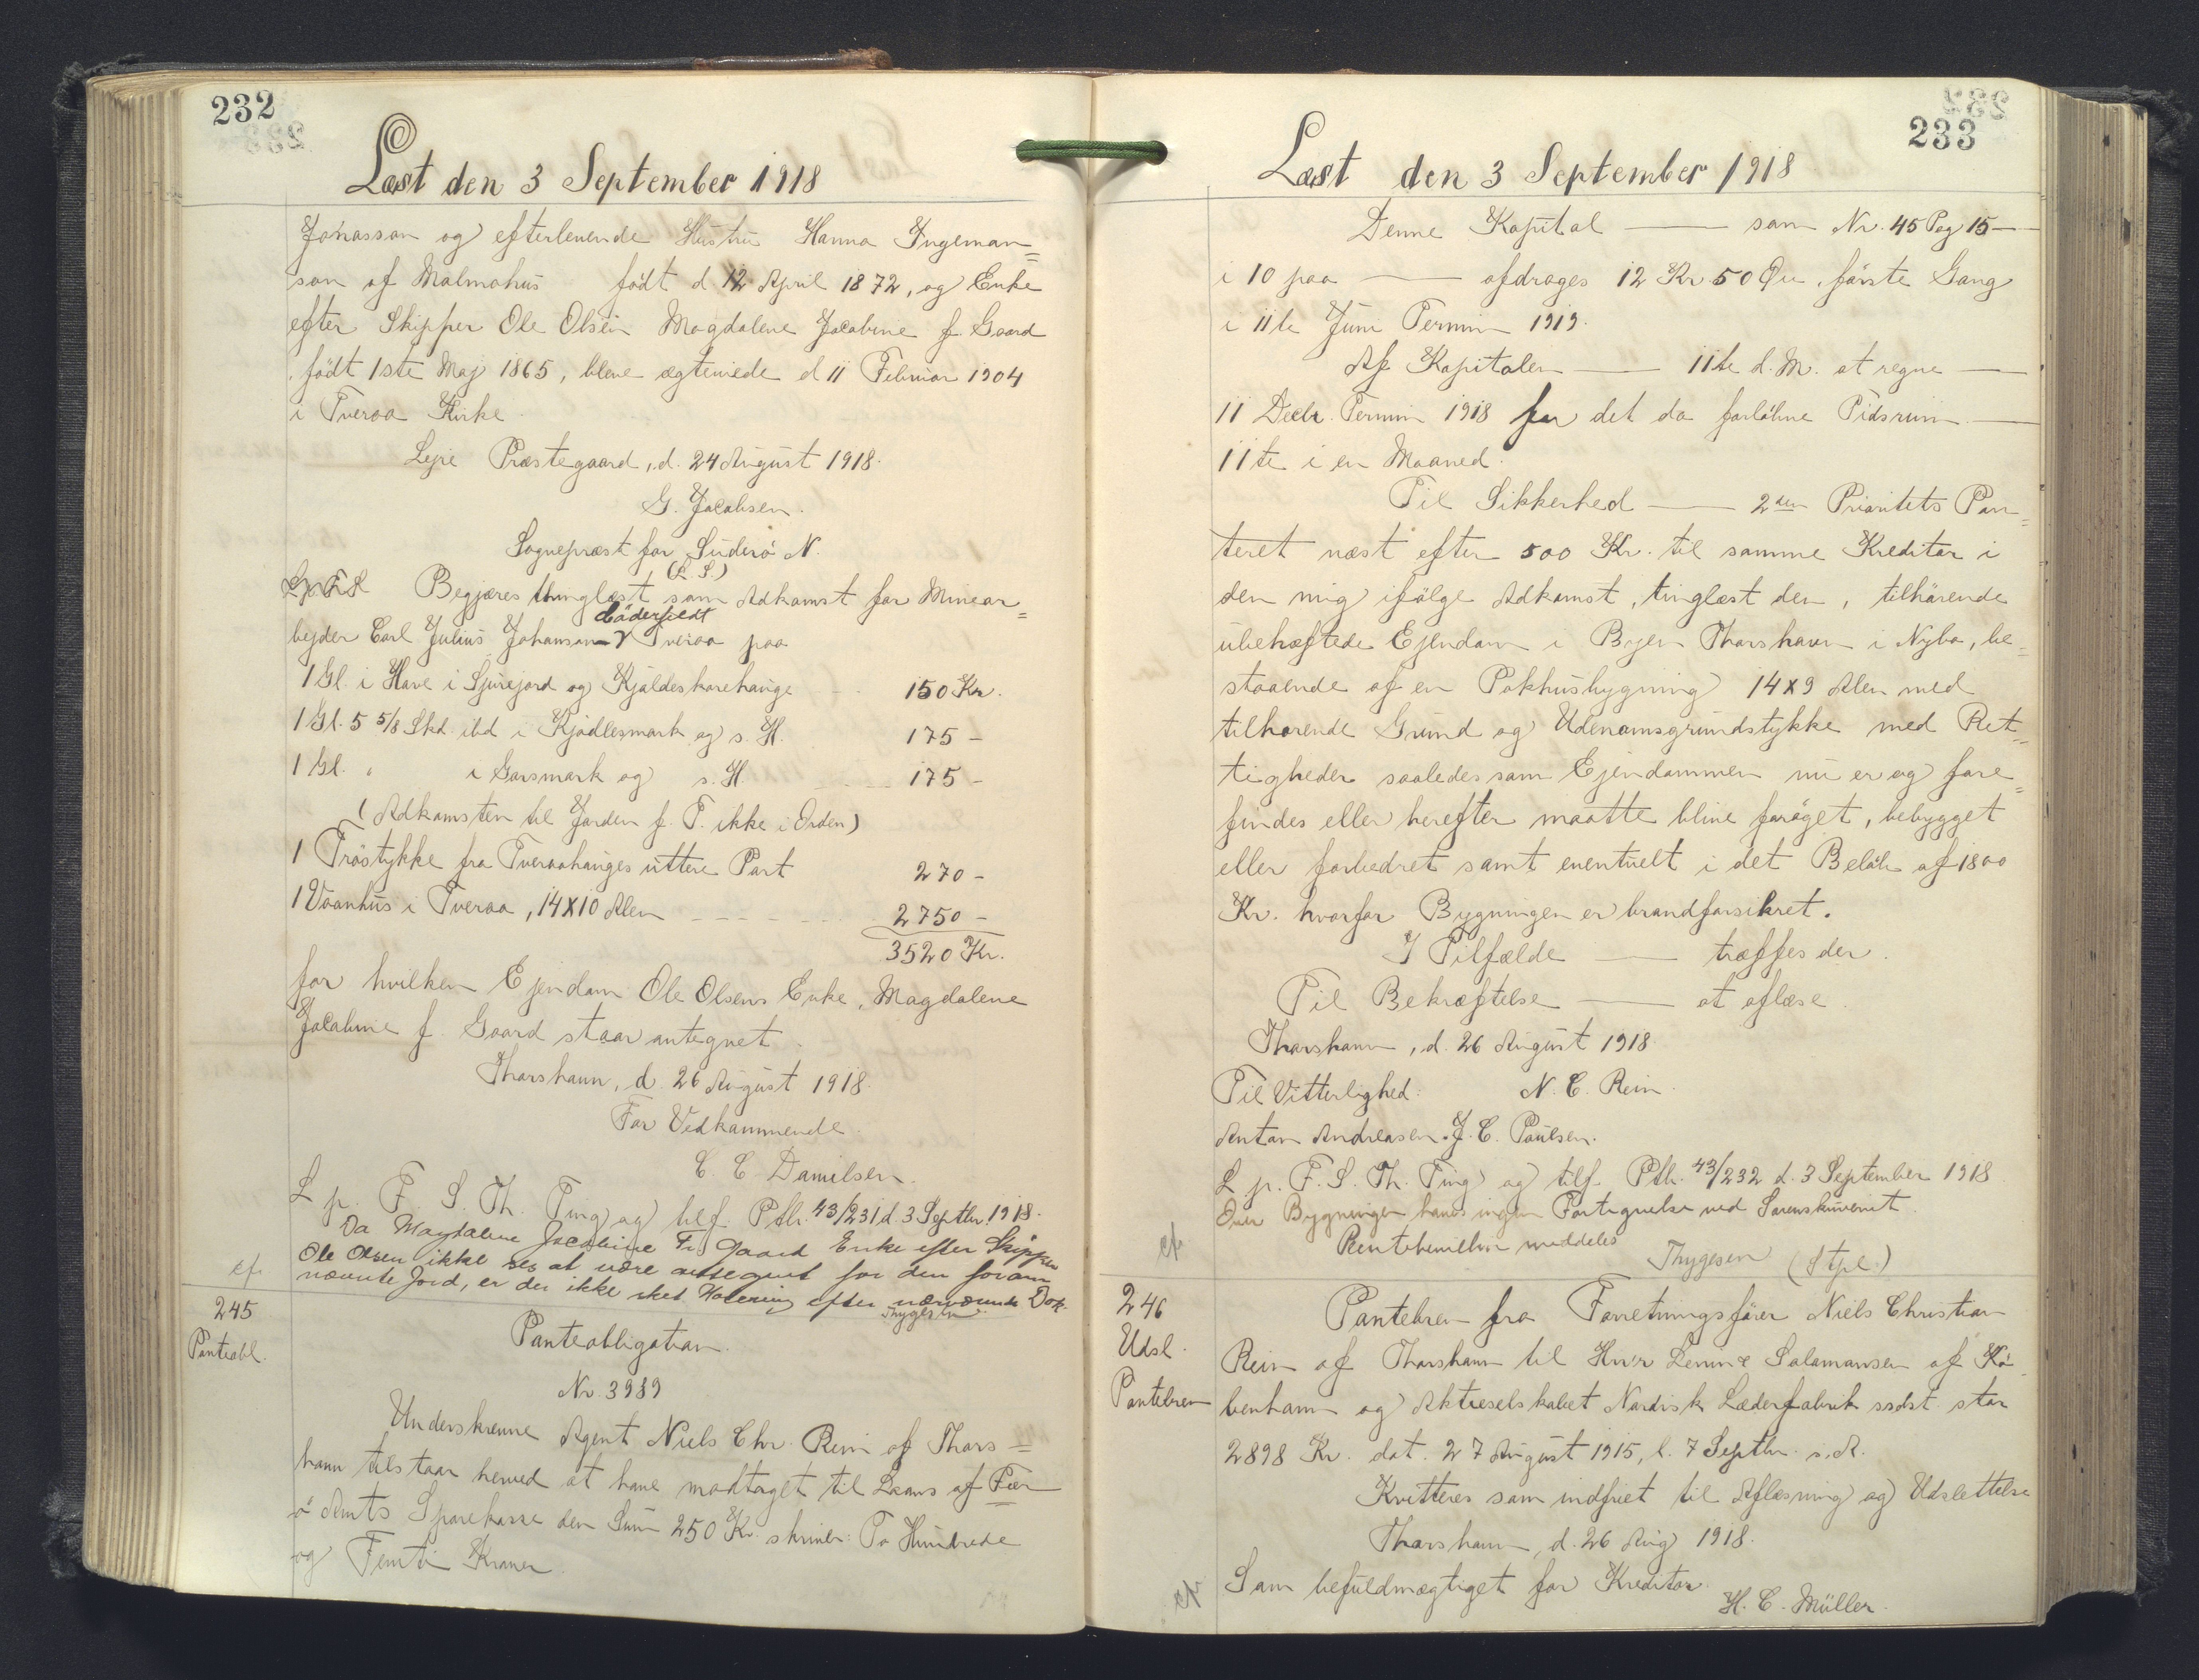 232
Læst den 3 September 1918
Johasson og efterlevende Hustru Hanna Ingeman=
son af Malmøhus født d 12 April 1872, og Enke
efter Skipper Ole Olsen Magdalene Jacobine f. Gaard
født 1ste Maj 1865, bleve ægteviede d 11 Februar 1904
i Tveraa Kirke.
Præstegaard, d. 24 August 1918.
G. Jacobsen.
Sognepræst for Suderø N.
(L. S.)
Begjæres thinglæst som Adkomst for Minear=
bejder Carl Julius Johanson Tveraa paa
1 Gl. i Have i Sjurejord og Kjøldeskorehauge 150 Kr.
1 Gl. 5 5/8 Skd. ibd i Kjødlesmark og s. H. 175 –
1 Gl. " i Garsmark og s. H. 175 –
(Adkomsten til Jorden f. T. ikke i Orden)
1 Trøstykke fra Tveraahauges uttere Part 270 –
1 Vaanhus i Tveraa, 14X10 Alen 2750 –
3520 Kr.
for hvilken Ejendom Ole Olsens Enke, Magdalene
Jacobine f. Gaard staar antegnet.
Thorshavn, d. 26 August 1918.
For Vedkommende.
C. C Danielsen.
L p. F. S. Th. Ting og tilf. Ptb. 43/231 d. 3 Septbr. 1918.
Da Magdalene Jacobine F. Gaard Enke efter Skipper
Ole Olsen ikke ses at være antegnet for den foran
nævnte Jord, er der ikke sket Notering efter nærværende Dok.
Thygesen
cf.
245
Panteobl.
Panteobligation.
Nr. 3989
Underskrevne Agent Niels Chr. Rein af Thors=
havn tilstaar herved at have modtaget til Laans af Fær
ø Amts Sparekasse den Sum 250 Kr. skriver: To Hundrede
og Femti Kroner.
233
Læst den 3 September 1918
Denne Kapital —— som Nr. 45 Pag 15 —
i 10 paa —— afdrages 12 Kr 50 Øre, første Gang
i 11te Juni Termin 1919.
Af Kapitalen —— 11te d. M. at regne ——
11 Decbr. Termin 1918 for det da forløbne Tidsrum ——
11te i en Maaned.
Til Sikkerhed —— 2den Prioritets Pan=
teret næst efter 500 Kr. til samme Kreditor i
den mig ifølge Adkomst, tinglæst den , tilhørende
ubehæftede Ejendom i Byen Thorshavn i Nybo, be=
staaende af en Pakhusbygning 14X9 Alen med
tilhørende Grund og Udenomsgrundstykke med Ret=
tigheder saaledes som Ejendommen nu er og fore=
findes eller herefter maatte blive forøget, bebygget
eller forbedret samt eventuelt i det Beløb af 1800
Kr. hvorfor Bygningen er brandforsikret.
I Tilfælde —— træffes der.
Til Bekræftelse —— at aflæse.
Thorshavn, d. 26 August 1918
Til Vitterlighed: N. C. Rein.
Anton Andreasen. J. C. Poulsen.
L p. F. S. Th. Ting og tilf. Ptb. 43/232 d. 3 September 1918
Over Bygningen haves ingen Fortegnelse ved Sorenskriveriet.
Rentebevillin meddeles
Thygesen (Stpl.)
cf.
246
Udsl.
Pantebrev
Pantebrev fra Forretningsfører Niels Christian
Rein af Thorshavn til Herr Levin & Salomonsen af Kø
benhavn og Aktieselskabet Nordisk Læderfabrik ssdst. stor
2898 Kr. dat. 27 August 1915, l. 7 Septbr. s. A.
Kvitteres som indfriet til Aflæsning og Udslettelse
Thorshavn, d. 26 Aug 1918.
Som befuldmægtiget for Kreditor.
H. C. Müller.
cf.